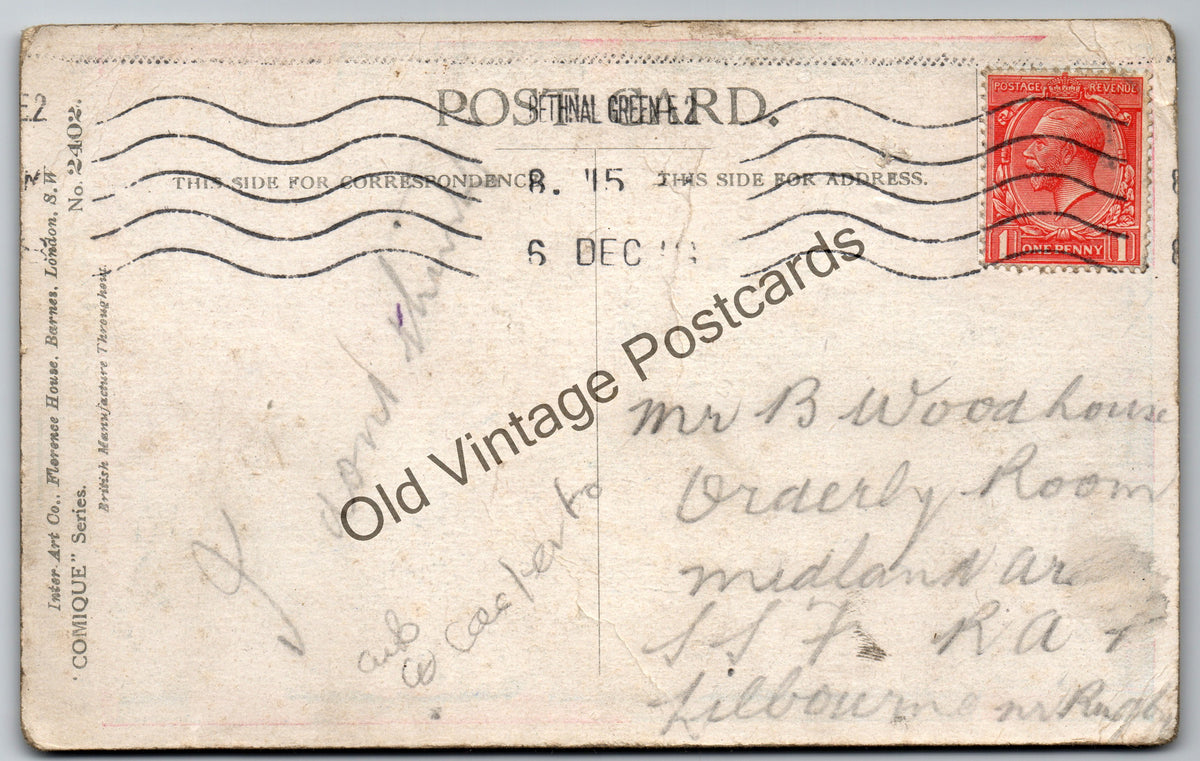 POST CARD.
BETHNAL GREEN E2
8. 15
6 DEC
E2
THIS SIDE FOR CORRESPONDENCE
THIS SIDE FOR ADDRESS.
POSTAGE REVENUE
1 ONE PENNY 1
Inter-Art Co., Florence House, Barnes, London, S.W
"COMIQUE" Series. No. 2402.
British Manufacture Throughout.
I dont think
Mr B Woodhouse
Orderly Room
Midland Ar
S S F R A F
Lilbourne nr Rugby
Old Vintage Postcards